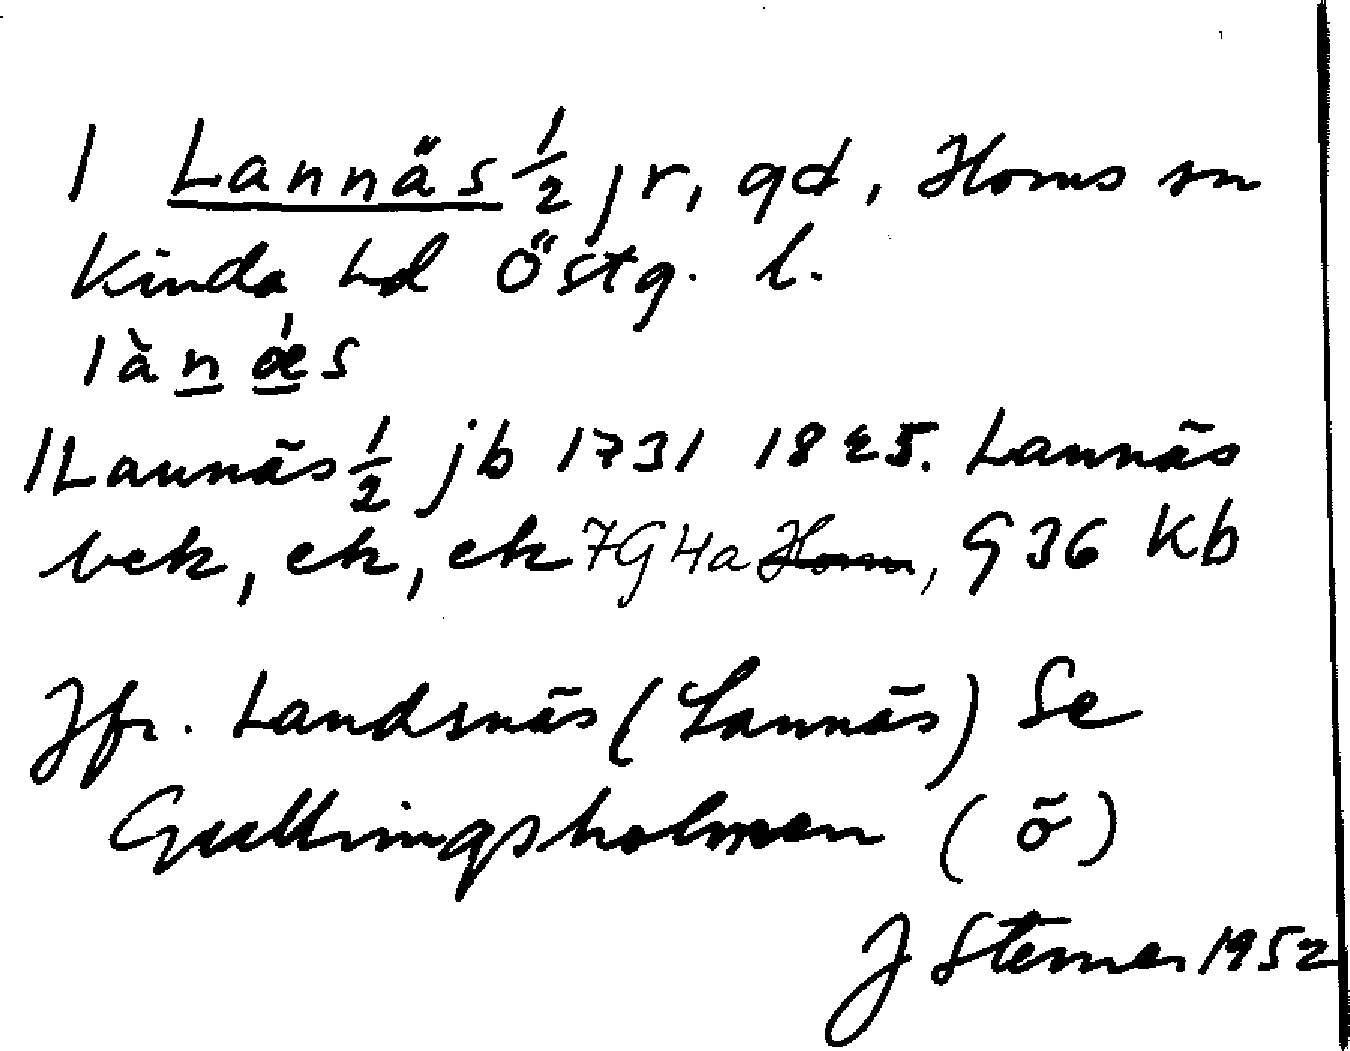 1 Lannäs 1/2 jr, gd, Horns sn
Kinda hd Östg. l.
lànǽs
1 Lannäs 1/2 jb 1731 1825. Lannäs
bek, ek, ek 7G4a Horn, G36 Kb
Jfr. Landsnäs (Lannäs) Se
Gullringsholmen (ö)
J Sterner 1952